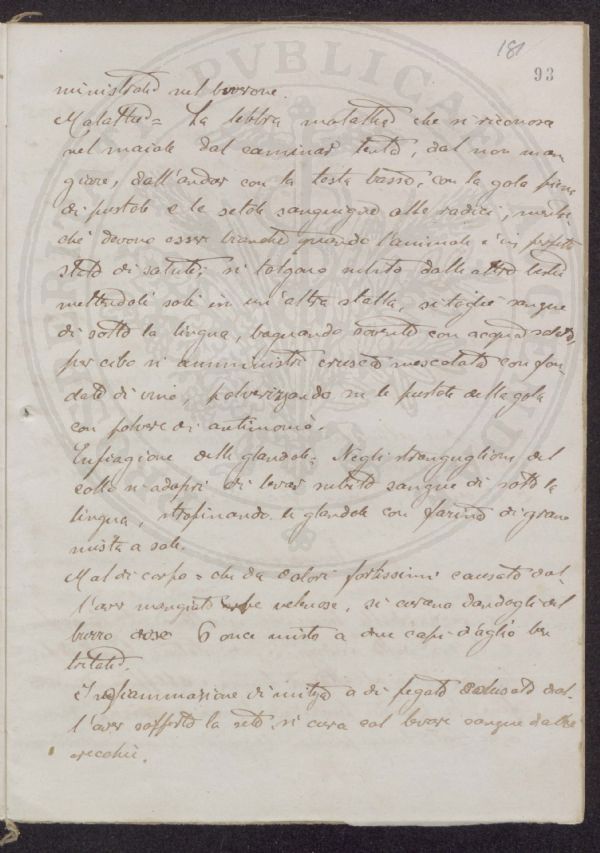 181
93
ministrato nel beverone.
Malattie = La lebbra malattia che si riconosce
nel maiale dal caminar lento, dal non man
giare, dall'andar con la testa bassa, con la gola piena
di pustole e le setole sanguigne alle radici, mentre
chè devono esser bianche quando l'animale è in perfetto
stato di salute; si tolgano subito dalle altre bestie
mettendoli soli in un'altra stalla, si toglie sangue
di sotto la lingua, bagnando sovente con acqua salata,
per cibo si amministri crusca mescolata con fon
data di vino, polverizzando su le pustole della gola
con polvere di antimonio.
Enfiagione delle glandole = Negli stranguglioni del
collo si adopri di levar subito sangue di sotto la
lingua, strofinando le glandole con farina di grano
mista a sale.
Mal di corpo = che da dolori fortissimi causato dal
l'aver mangiato erbe velenose, si curano dandogli del
burro 6 once misto a due capi d'aglio ben
tritato.
Infiammazione di milza o di fegato causata dal
l'aver sofferto la sete, si cura col levare sangue dalle
orecchie.